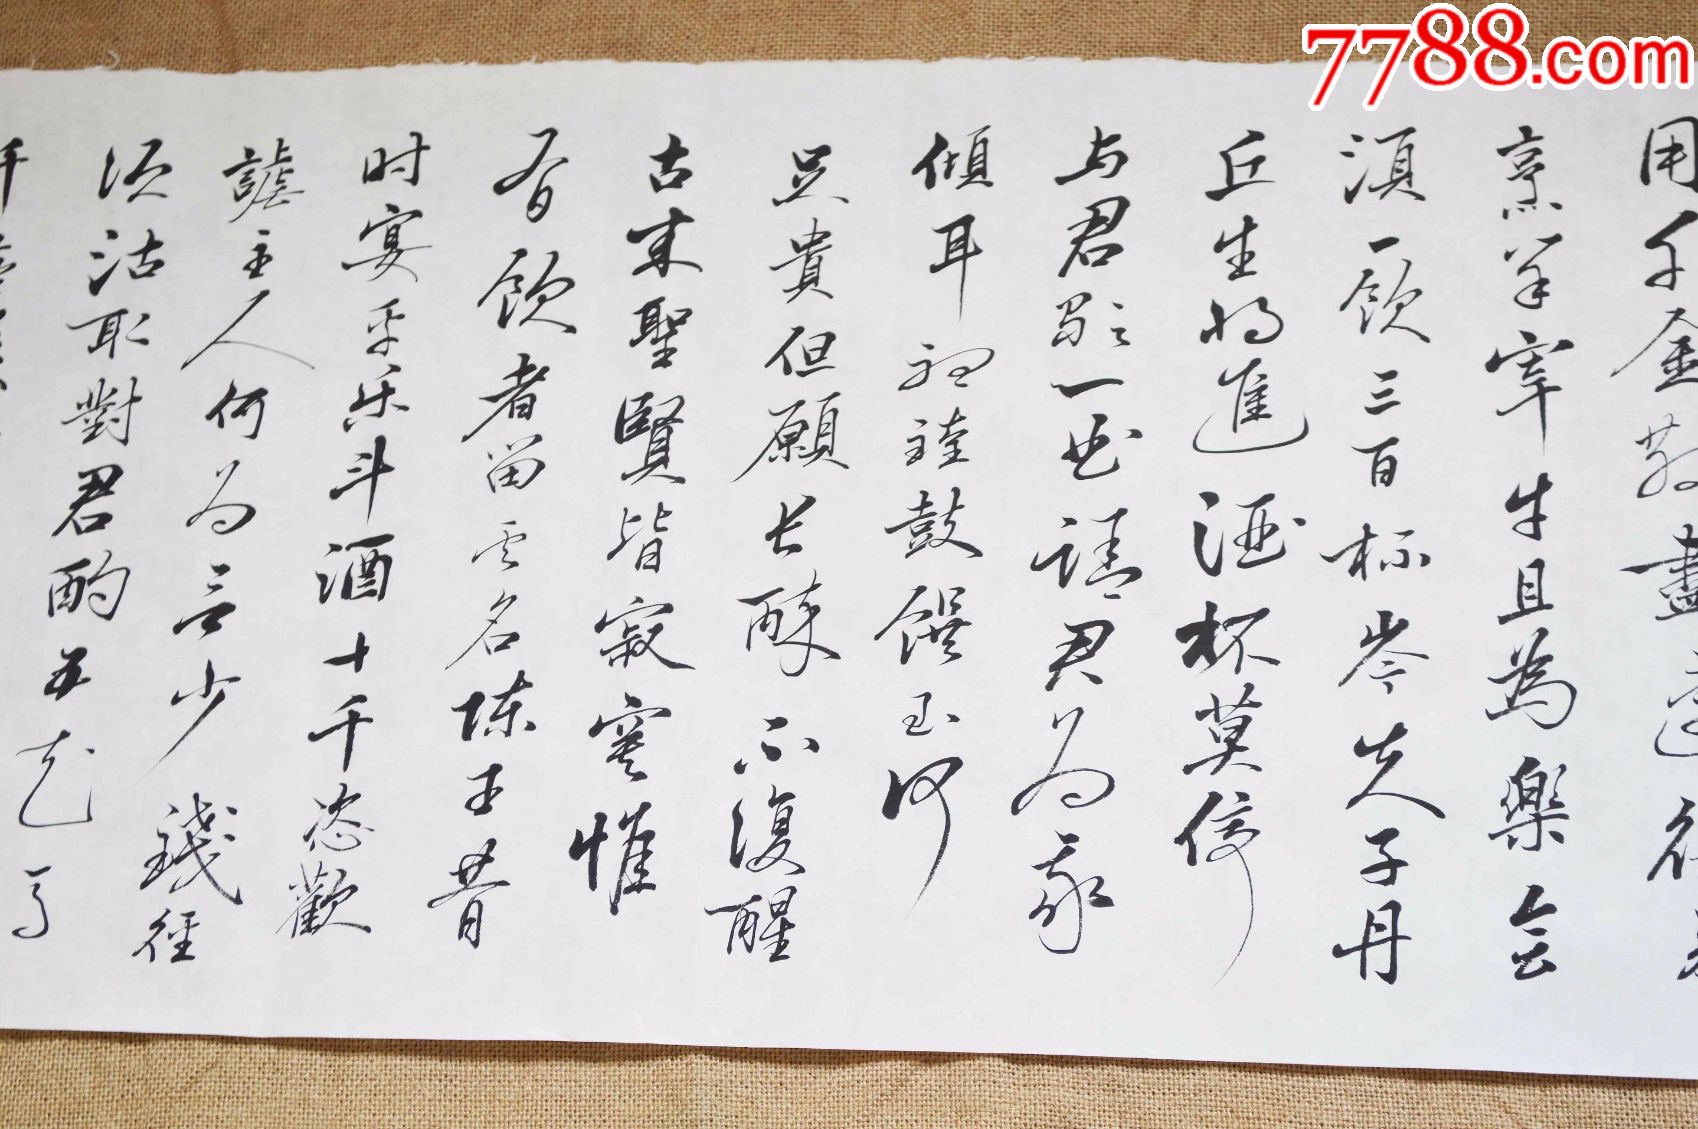 7788.com
用千金散盡還復来
烹羊宰牛且為樂会
須一飲三百杯岑夫子丹
丘生将進酒杯莫停
与君歌一曲請君为我
傾耳聽鐘鼓饌玉何
足貴但願长醉不復醒
古来聖賢皆寂寞惟
有飲者留其名陳王昔
时宴平乐斗酒十千恣歡
謔主人何为言少錢径
须沽取對君酌五花马
千金裘